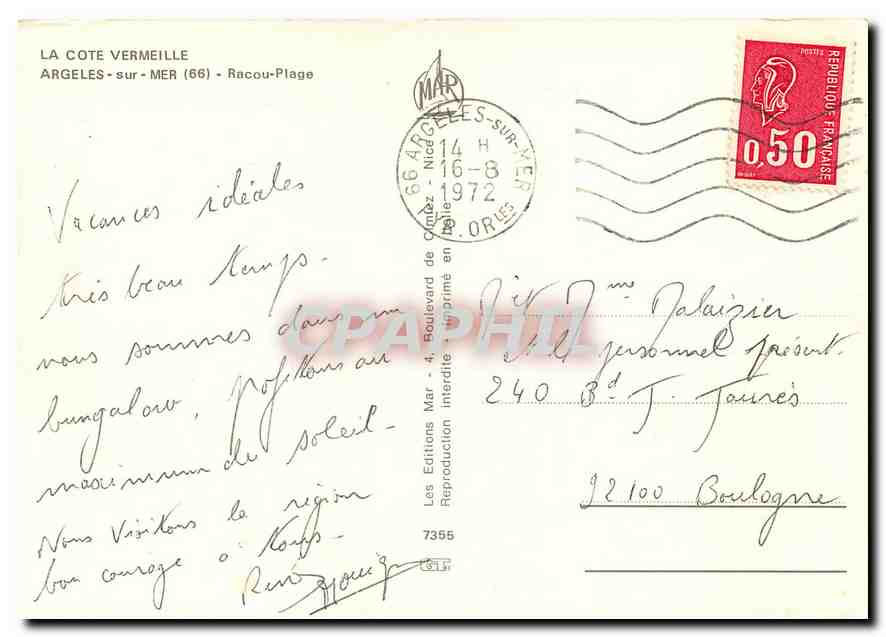 LA COTE VERMEILLE
ARGELES-sur-MER (66) - Racou-Plage
MAR
66 ARGELÈS-SUR-MER
14 H
16-8
1972
PYR. ORLES
POSTES
REPUBLIQUE FRANÇAISE
0,50
Vacances idéales
très beau temps.
nous sommes dans un
bungalow, profitons au
maximum du soleil -
Nous visitons la région
bon courage à tous -
René
Mr et Mme Malaizier
et le personnel présent.
240 Bd J. Jaurès
92100 Boulogne
Les Editions Mar - 4, Boulevard de Cimiez - Nice
Reproduction interdite - Imprimé en Italie
7355
CPAPHIL